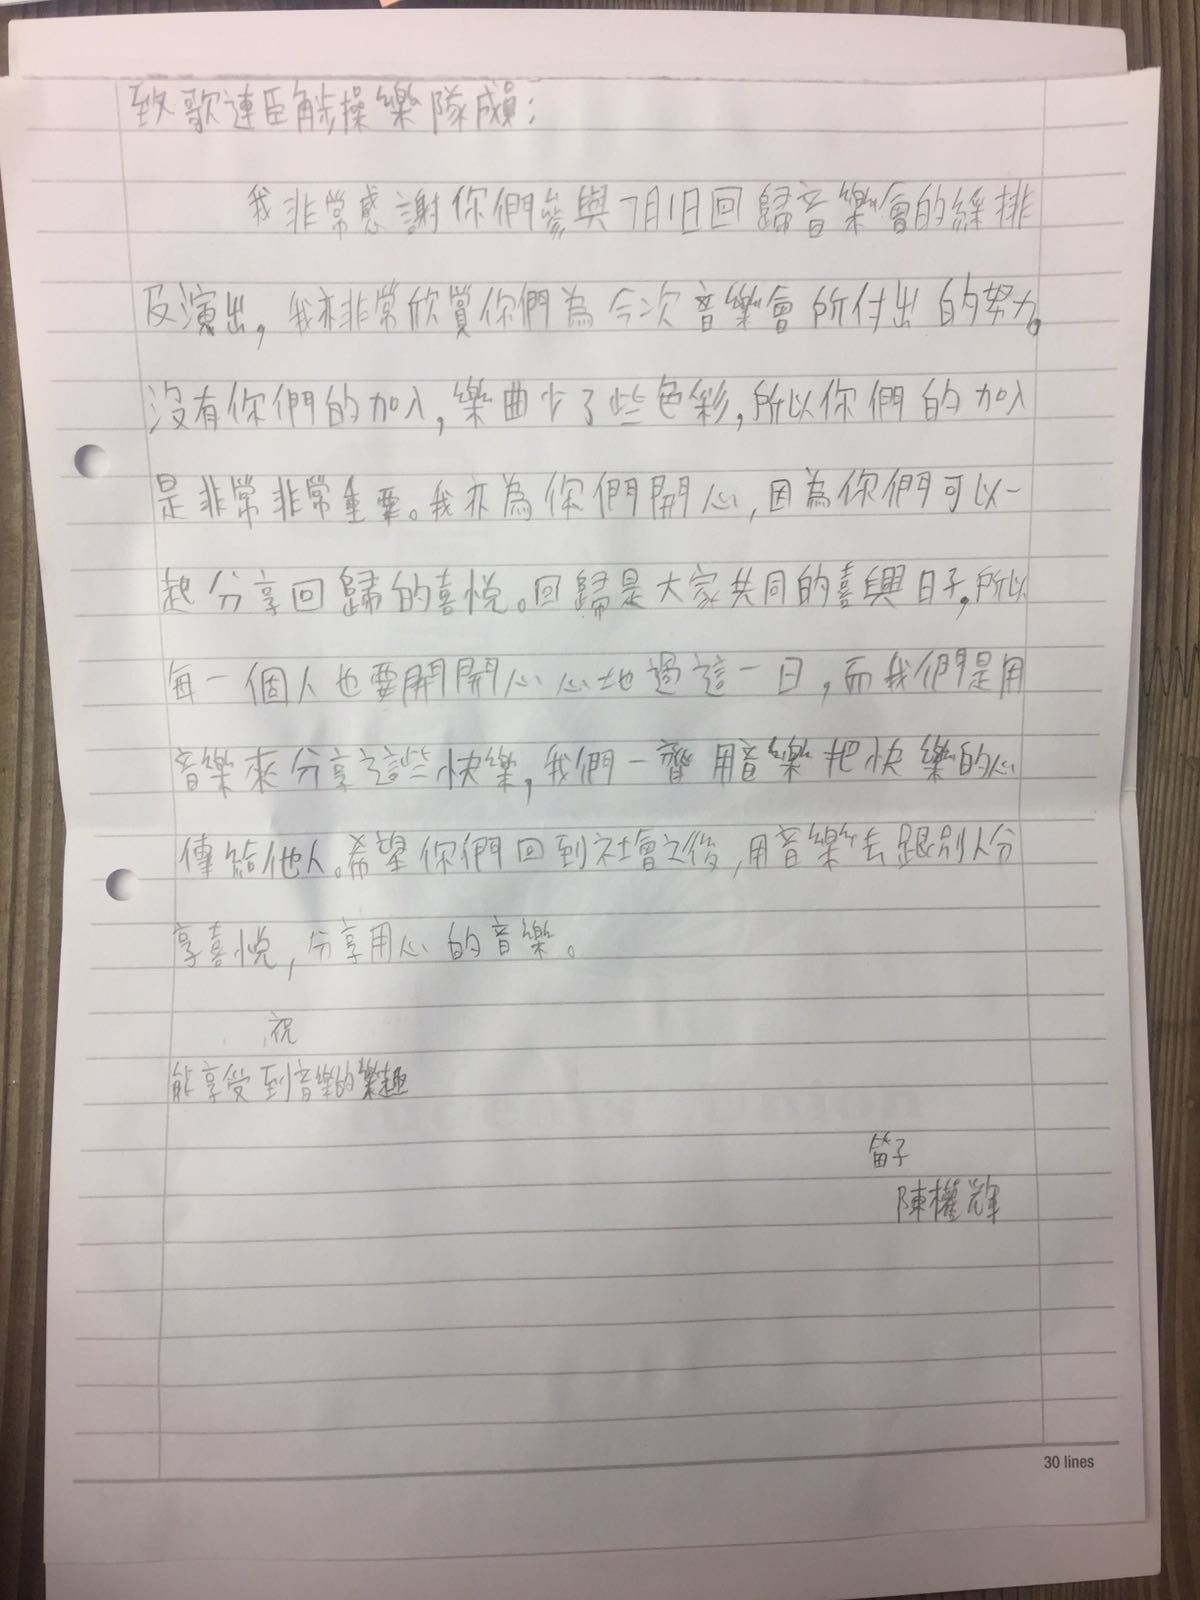 致歌連臣觧操樂隊成員：
我非常感謝你們參與7月1日回歸音樂會的綵排
及演出，我亦非常欣賞你們為今次音樂會所付出的努力。
沒有你們的加入，樂曲少了些色彩，所以你們的加入
是非常非常重要。我亦為你們開心，因為你們可以一
起分享回歸的喜悅。回歸是大家共同的喜興日子，所以
每一個人也要開開心心地過這一日，而我們是用
音樂來分享這些快樂，我們一齊用音樂把快樂的心
傳給他人。希望你們回到社會之後，用音樂去跟別人分
享喜悅，分享用心的音樂。
祝
能享受到音樂的樂趣
笛子
陳權輝
30 lines